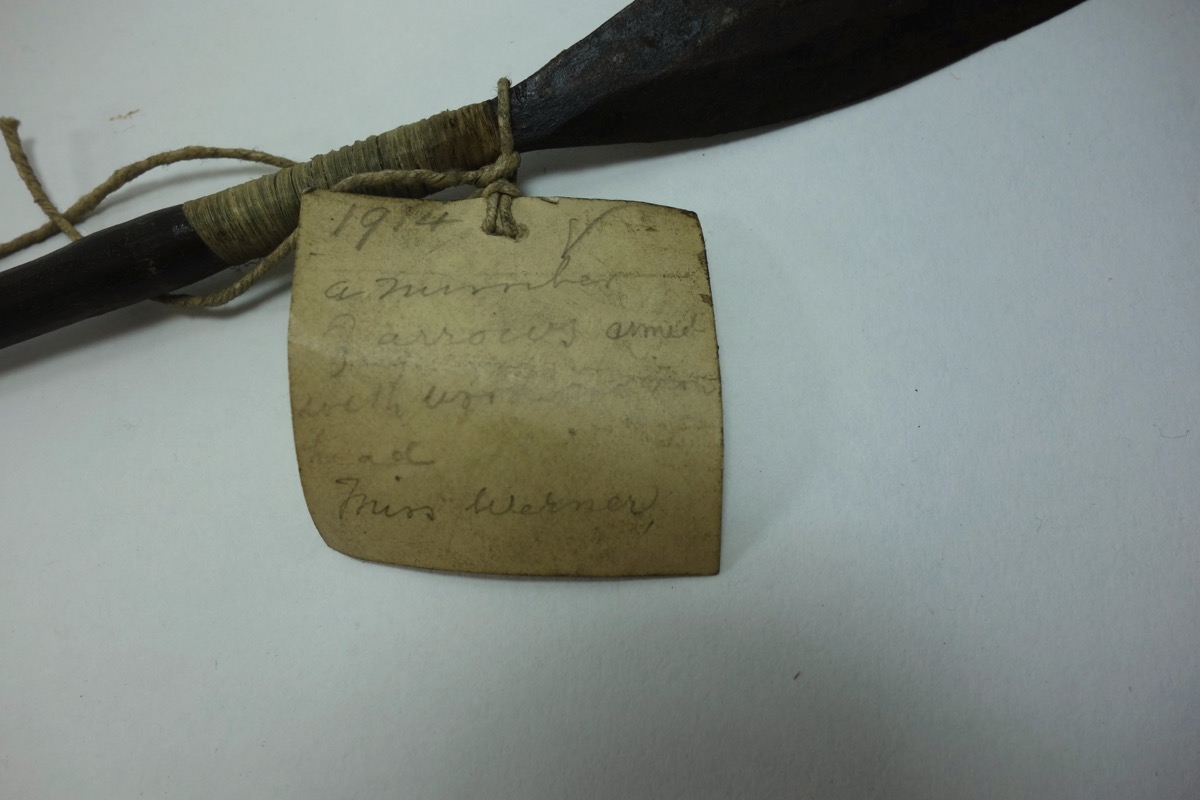 1914
a number
of arrows armed
with
head
Miss Werner